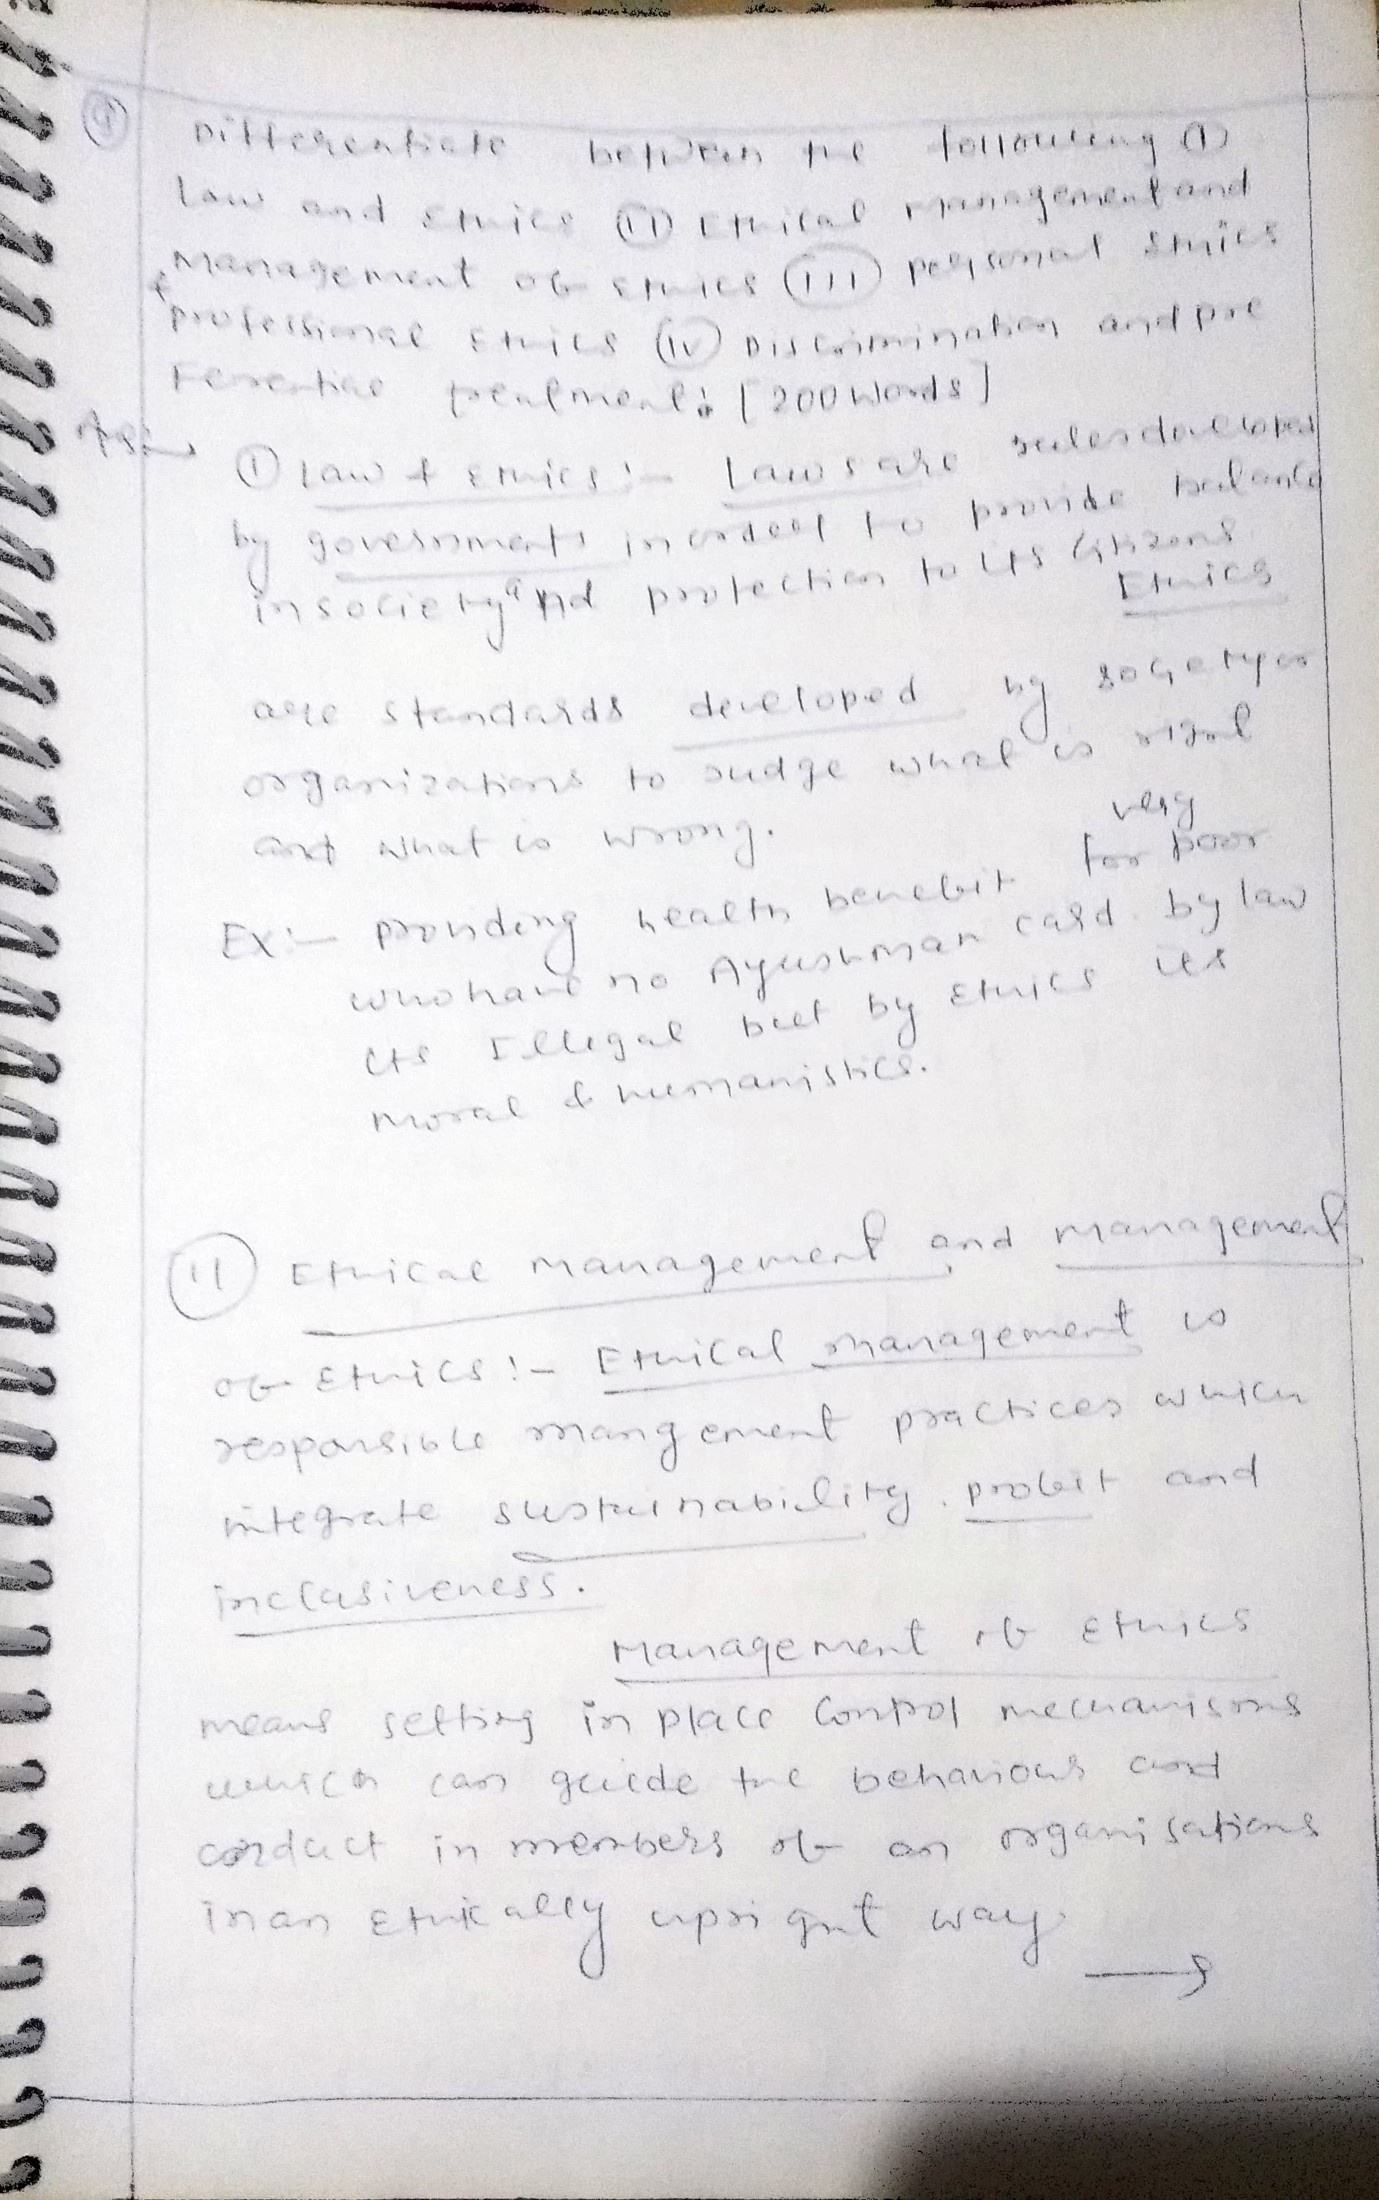 Differentiate between the following (I)
Law and Ethics (II) Ethical Management and
Management of Ethics (III) personal Ethics
& professional Ethics (IV) Discrimination and pre
ferential treatment: [200 words]
Ans:-
(I) Law & Ethics :- Laws are rules developed
by governments in order to provide balance
in society and protection to its citizens.
Ethics
are standards developed by society or
organizations to judge what is right
and what is wrong.
Ex :- providing health benefit for very poor
who have no Ayushman card. by law
its Illegal but by Ethics its
moral & humanistics.
(II) Ethical management and management
of Ethics :- Ethical management is
responsible mangement practices which
integrate sustainability, profit and
inclusiveness.
Management of Ethics
means setting in place control mechanisms
which can guide the behaviour and
conduct in members of an organisations
in an Ethically upright way.